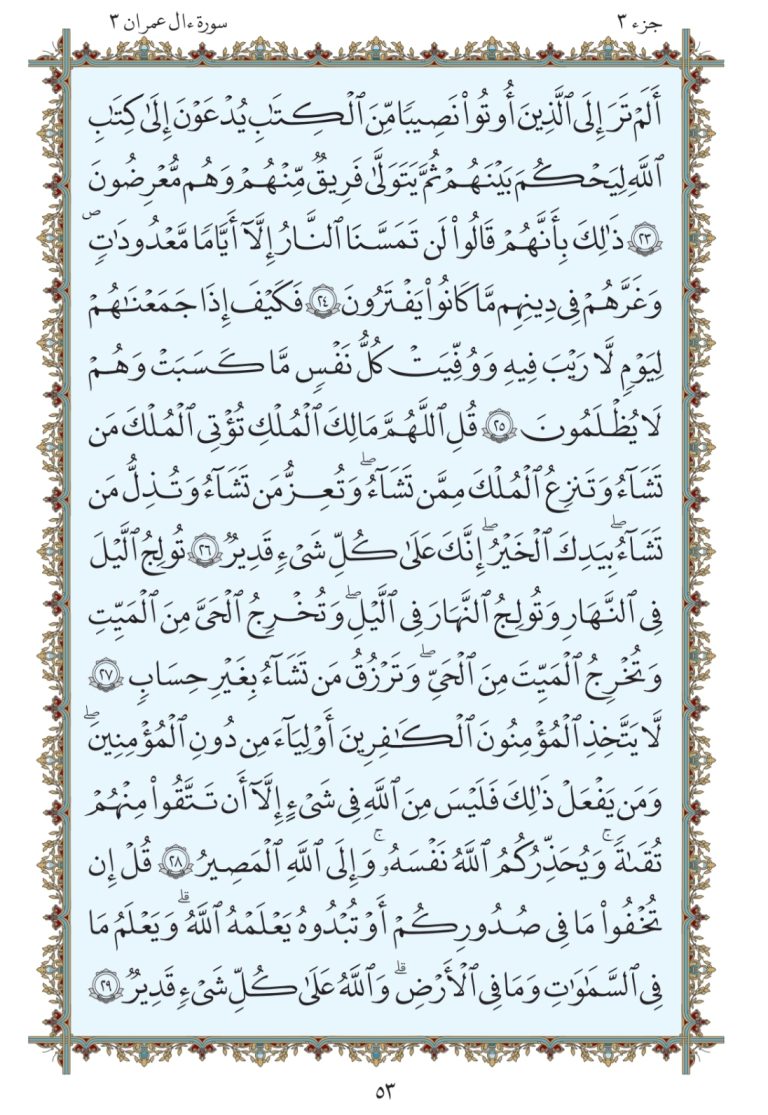 جزء ٣
سورة ءال عمران ٣
أَلَمْ تَرَ إِلَى ٱلَّذِينَ أُوتُوا۟ نَصِيبًا مِّنَ ٱلْكِتَـٰبِ يُدْعَوْنَ إِلَىٰ كِتَـٰبِ
ٱللَّهِ لِيَحْكُمَ بَيْنَهُمْ ثُمَّ يَتَوَلَّىٰ فَرِيقٌ مِّنْهُمْ وَهُم مُّعْرِضُونَ
٢٣ ذَٰلِكَ بِأَنَّهُمْ قَالُوا۟ لَن تَمَسَّنَا ٱلنَّارُ إِلَّآ أَيَّامًا مَّعْدُودَٰتٍ ۖ
وَغَرَّهُمْ فِى دِينِهِم مَّا كَانُوا۟ يَفْتَرُونَ ٢٤ فَكَيْفَ إِذَا جَمَعْنَـٰهُمْ
لِيَوْمٍ لَّا رَيْبَ فِيهِ وَوُفِّيَتْ كُلُّ نَفْسٍ مَّا كَسَبَتْ وَهُمْ
لَا يُظْلَمُونَ ٢٥ قُلِ ٱللَّهُمَّ مَـٰلِكَ ٱلْمُلْكِ تُؤْتِى ٱلْمُلْكَ مَن
تَشَآءُ وَتَنزِعُ ٱلْمُلْكَ مِمَّن تَشَآءُ ۖ وَتُعِزُّ مَن تَشَآءُ وَتُذِلُّ مَن
تَشَآءُ ۖ بِيَدِكَ ٱلْخَيْرُ ۖ إِنَّكَ عَلَىٰ كُلِّ شَىْءٍ قَدِيرٌ ٢٦ تُولِجُ ٱلَّيْلَ
فِى ٱلنَّهَارِ وَتُولِجُ ٱلنَّهَارَ فِى ٱلَّيْلِ ۖ وَتُخْرِجُ ٱلْحَىَّ مِنَ ٱلْمَيِّتِ
وَتُخْرِجُ ٱلْمَيِّتَ مِنَ ٱلْحَىِّ ۖ وَتَرْزُقُ مَن تَشَآءُ بِغَيْرِ حِسَابٍ ٢٧
لَّا يَتَّخِذِ ٱلْمُؤْمِنُونَ ٱلْكَـٰفِرِينَ أَوْلِيَآءَ مِن دُونِ ٱلْمُؤْمِنِينَ ۖ
وَمَن يَفْعَلْ ذَٰلِكَ فَلَيْسَ مِنَ ٱللَّهِ فِى شَىْءٍ إِلَّآ أَن تَتَّقُوا۟ مِنْهُمْ
تُقَىٰةً ۗ وَيُحَذِّرُكُمُ ٱللَّهُ نَفْسَهُۥ ۗ وَإِلَى ٱللَّهِ ٱلْمَصِيرُ ٢٨ قُلْ إِن
تُخْفُوا۟ مَا فِى صُدُورِكُمْ أَوْ تُبْدُوهُ يَعْلَمْهُ ٱللَّهُ ۗ وَيَعْلَمُ مَا
فِى ٱلسَّمَـٰوَٰتِ وَمَا فِى ٱلْأَرْضِ ۗ وَٱللَّهُ عَلَىٰ كُلِّ شَىْءٍ قَدِيرٌ ٢٩
٥٣